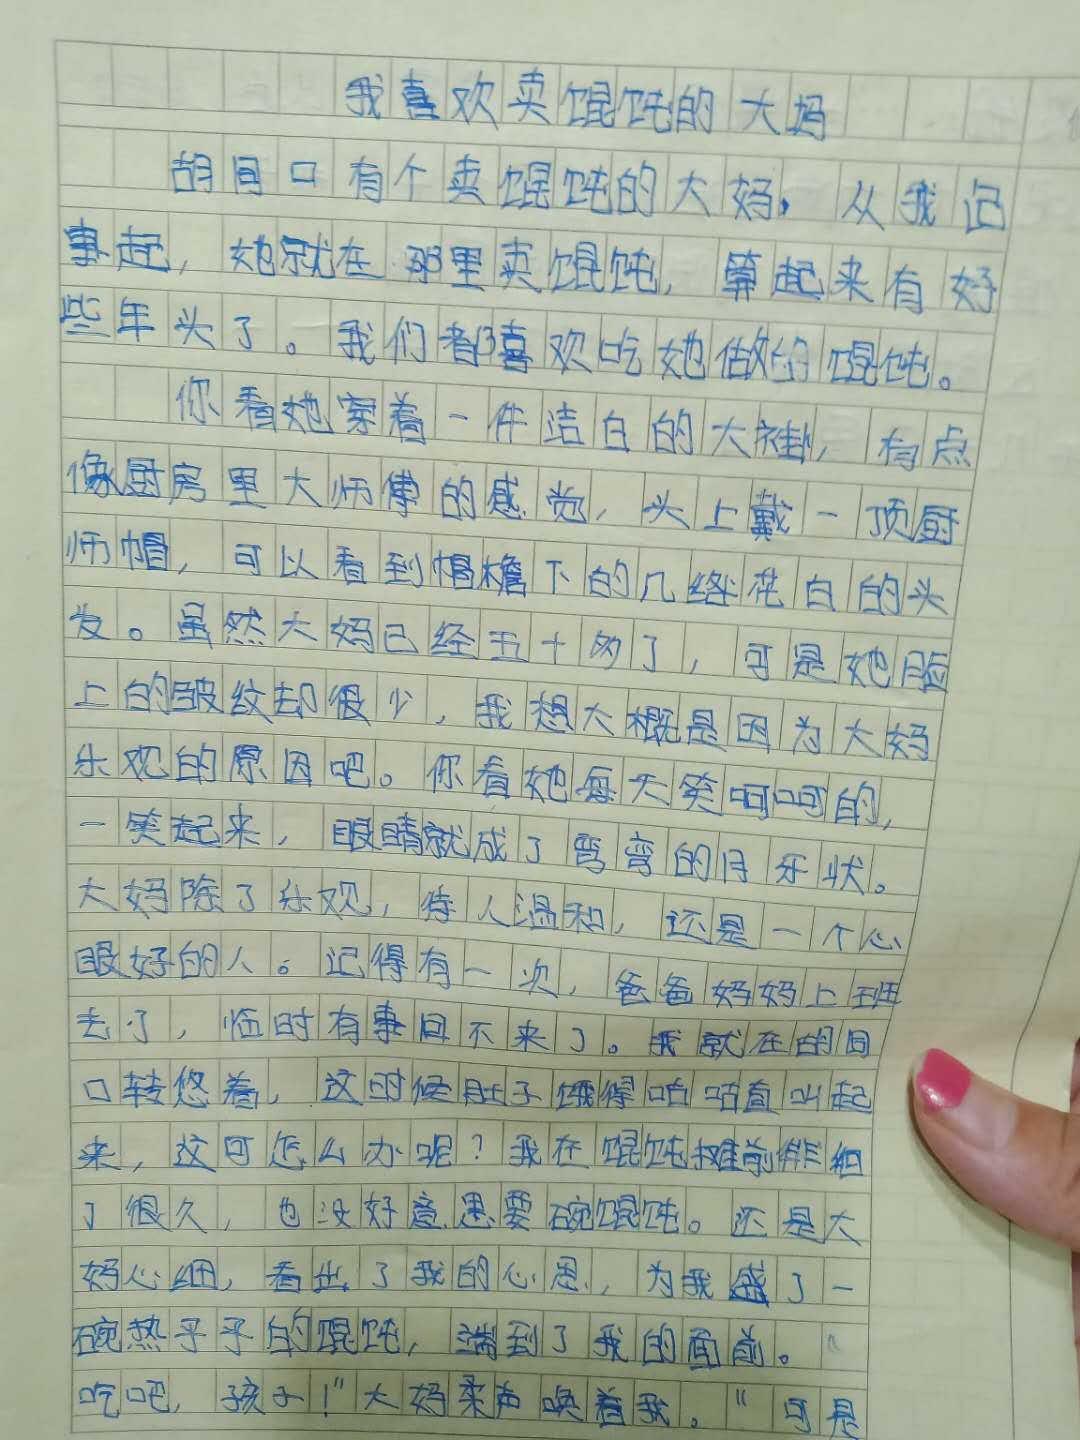 我喜欢卖馄饨的大妈
胡同口有个卖馄饨的大妈，从我记
事起，她就在那里卖馄饨，算起来有好
些年头了。我们都喜欢吃她做的馄饨。
你看她穿着一件洁白的大褂，有点
像厨房里大师傅的感觉，头上戴一顶厨
师帽，可以看到帽檐下的几绺花白的头
发。虽然大妈已经五十多了，可是她脸
上的皱纹却很少，我想大概是因为大妈
乐观的原因吧。你看她每天笑呵呵的，
一笑起来，眼睛就成了弯弯的月牙状。
大妈除了乐观，待人温和，还是一个心
眼好的人。记得有一次，爸爸妈妈上班
去了，临时有事回不来了。我就在的回
口转悠着，这时候肚子饿得咕咕直叫起
来，这可怎么办呢？我在馄饨摊前徘徊
了很久，也没好意思要碗馄饨。还是大
妈心细，看出了我的心思，为我盛了一
碗热乎乎的馄饨，端到了我的面前。“
吃吧，孩子！”大妈柔声唤着我。“可是